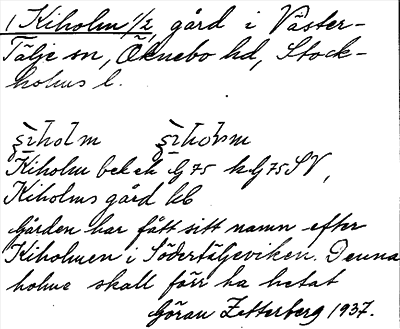 1 Kiholm 1/2, gård i Väster-
Tälje sn, Öknebo hd, Stock-
holms l.
Kiholm bel ek G75 kG75SV,
Kiholms gård hb
Gården har fått sitt namn efter
Kiholmen i Södertäljeviken. Denna
holme skall förr ha hetat
Göran Zetterberg 1937.